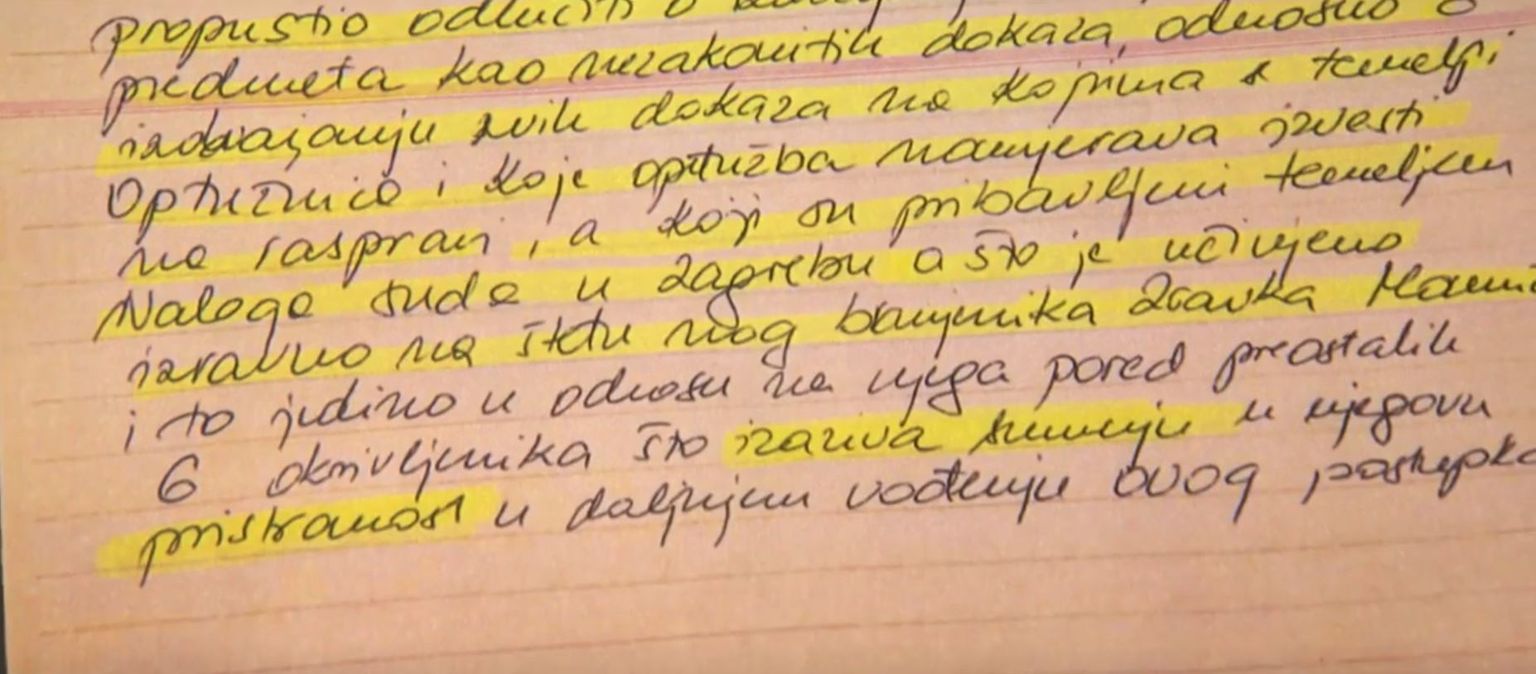 propustio odlučiti o
predmeta kao nezakonitih dokaza, odnosno o
izdvajanju svih dokaza na kojima s temelji
Optužnica i koje optužba namjerava izvesti
na raspravi, a koji su pribavljeni temeljem
Naloga suda u Zagrebu a što je učinjeno
izravno na štetu mog branjenika Zdravka Mamić
i to jedino u odnosu na njega pored preostalih
6 okrivljenika što izaziva sumnju u njegovu
pristranost u daljnjem vođenju ovog postupka